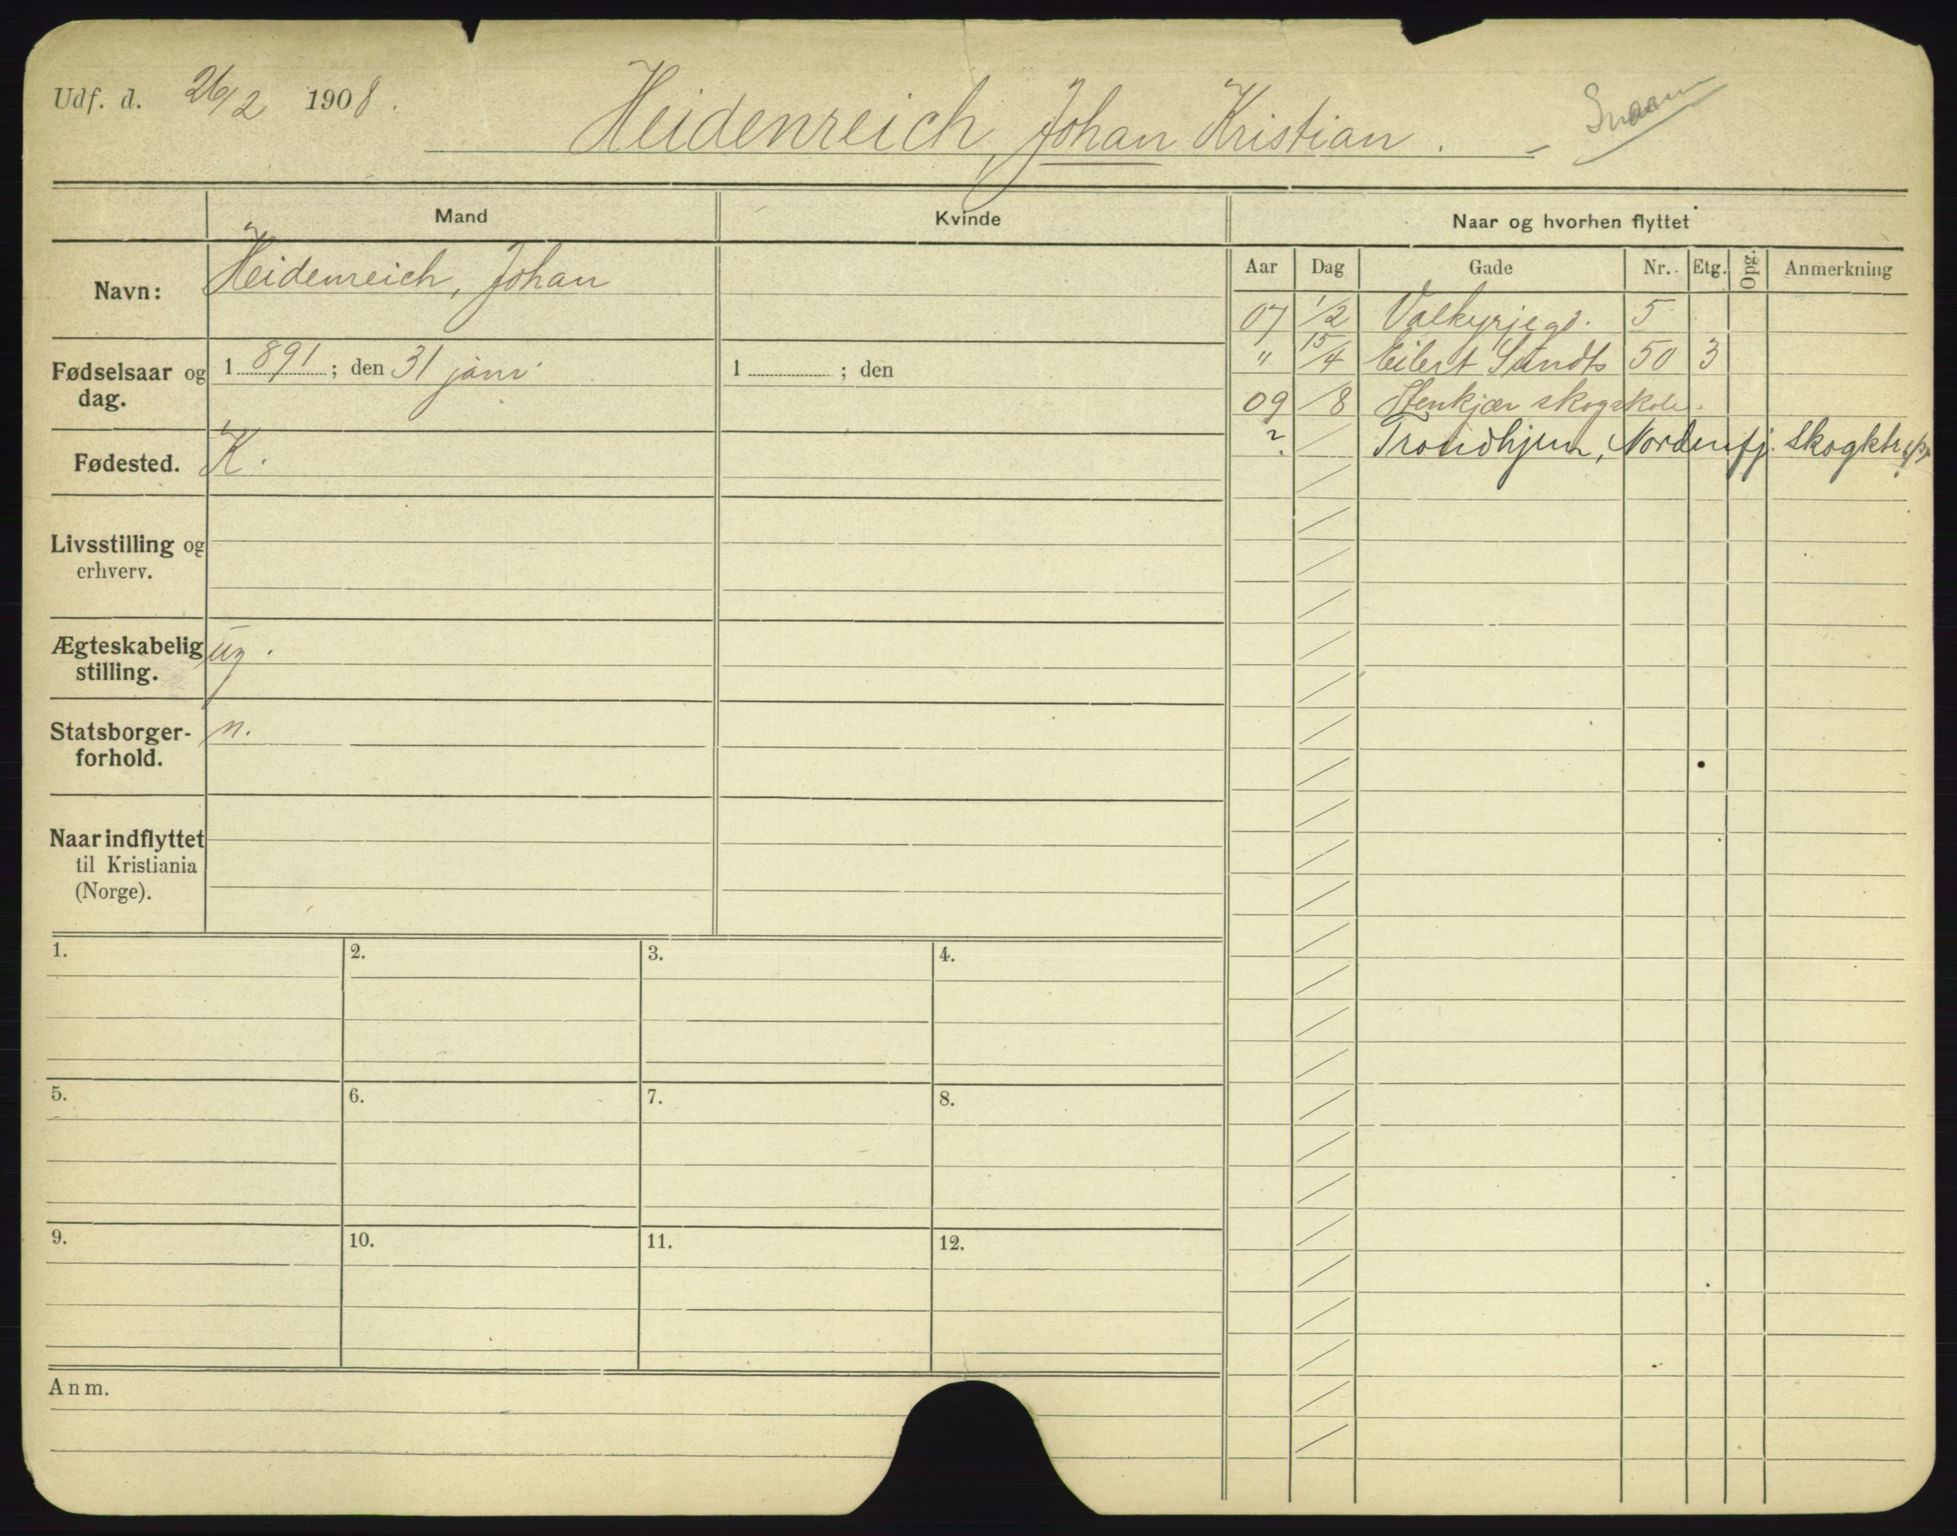 Udf. d. 26/2 1908.
Heidenreich, Johan Kristian.
Mand
Kvinde
Naar og hvorhen flyttet
Navn:
Heidenreich, Johan
Aar Dag Gade Nr. Etg. Opg. Anmerkning
07 1/2 Valkyrjegd. 5
Fødselsaar og dag.
1 891 ; den 31 jani
1 ; den
" 15/4 Eilert Sundts 50 3
09 /8 Stenkjær skogskole.
Fødested.
K.
? / Trondhjem, Nordenfj. Skogktr.
Livsstilling og
erhverv.
Ægteskabelig
stilling.
ug.
Statsborger-
forhold.
n.
Naar indflyttet
til Kristiania
(Norge).
1. 2. 3. 4.
5. 6. 7. 8.
9. 10. 11. 12.
Anm.